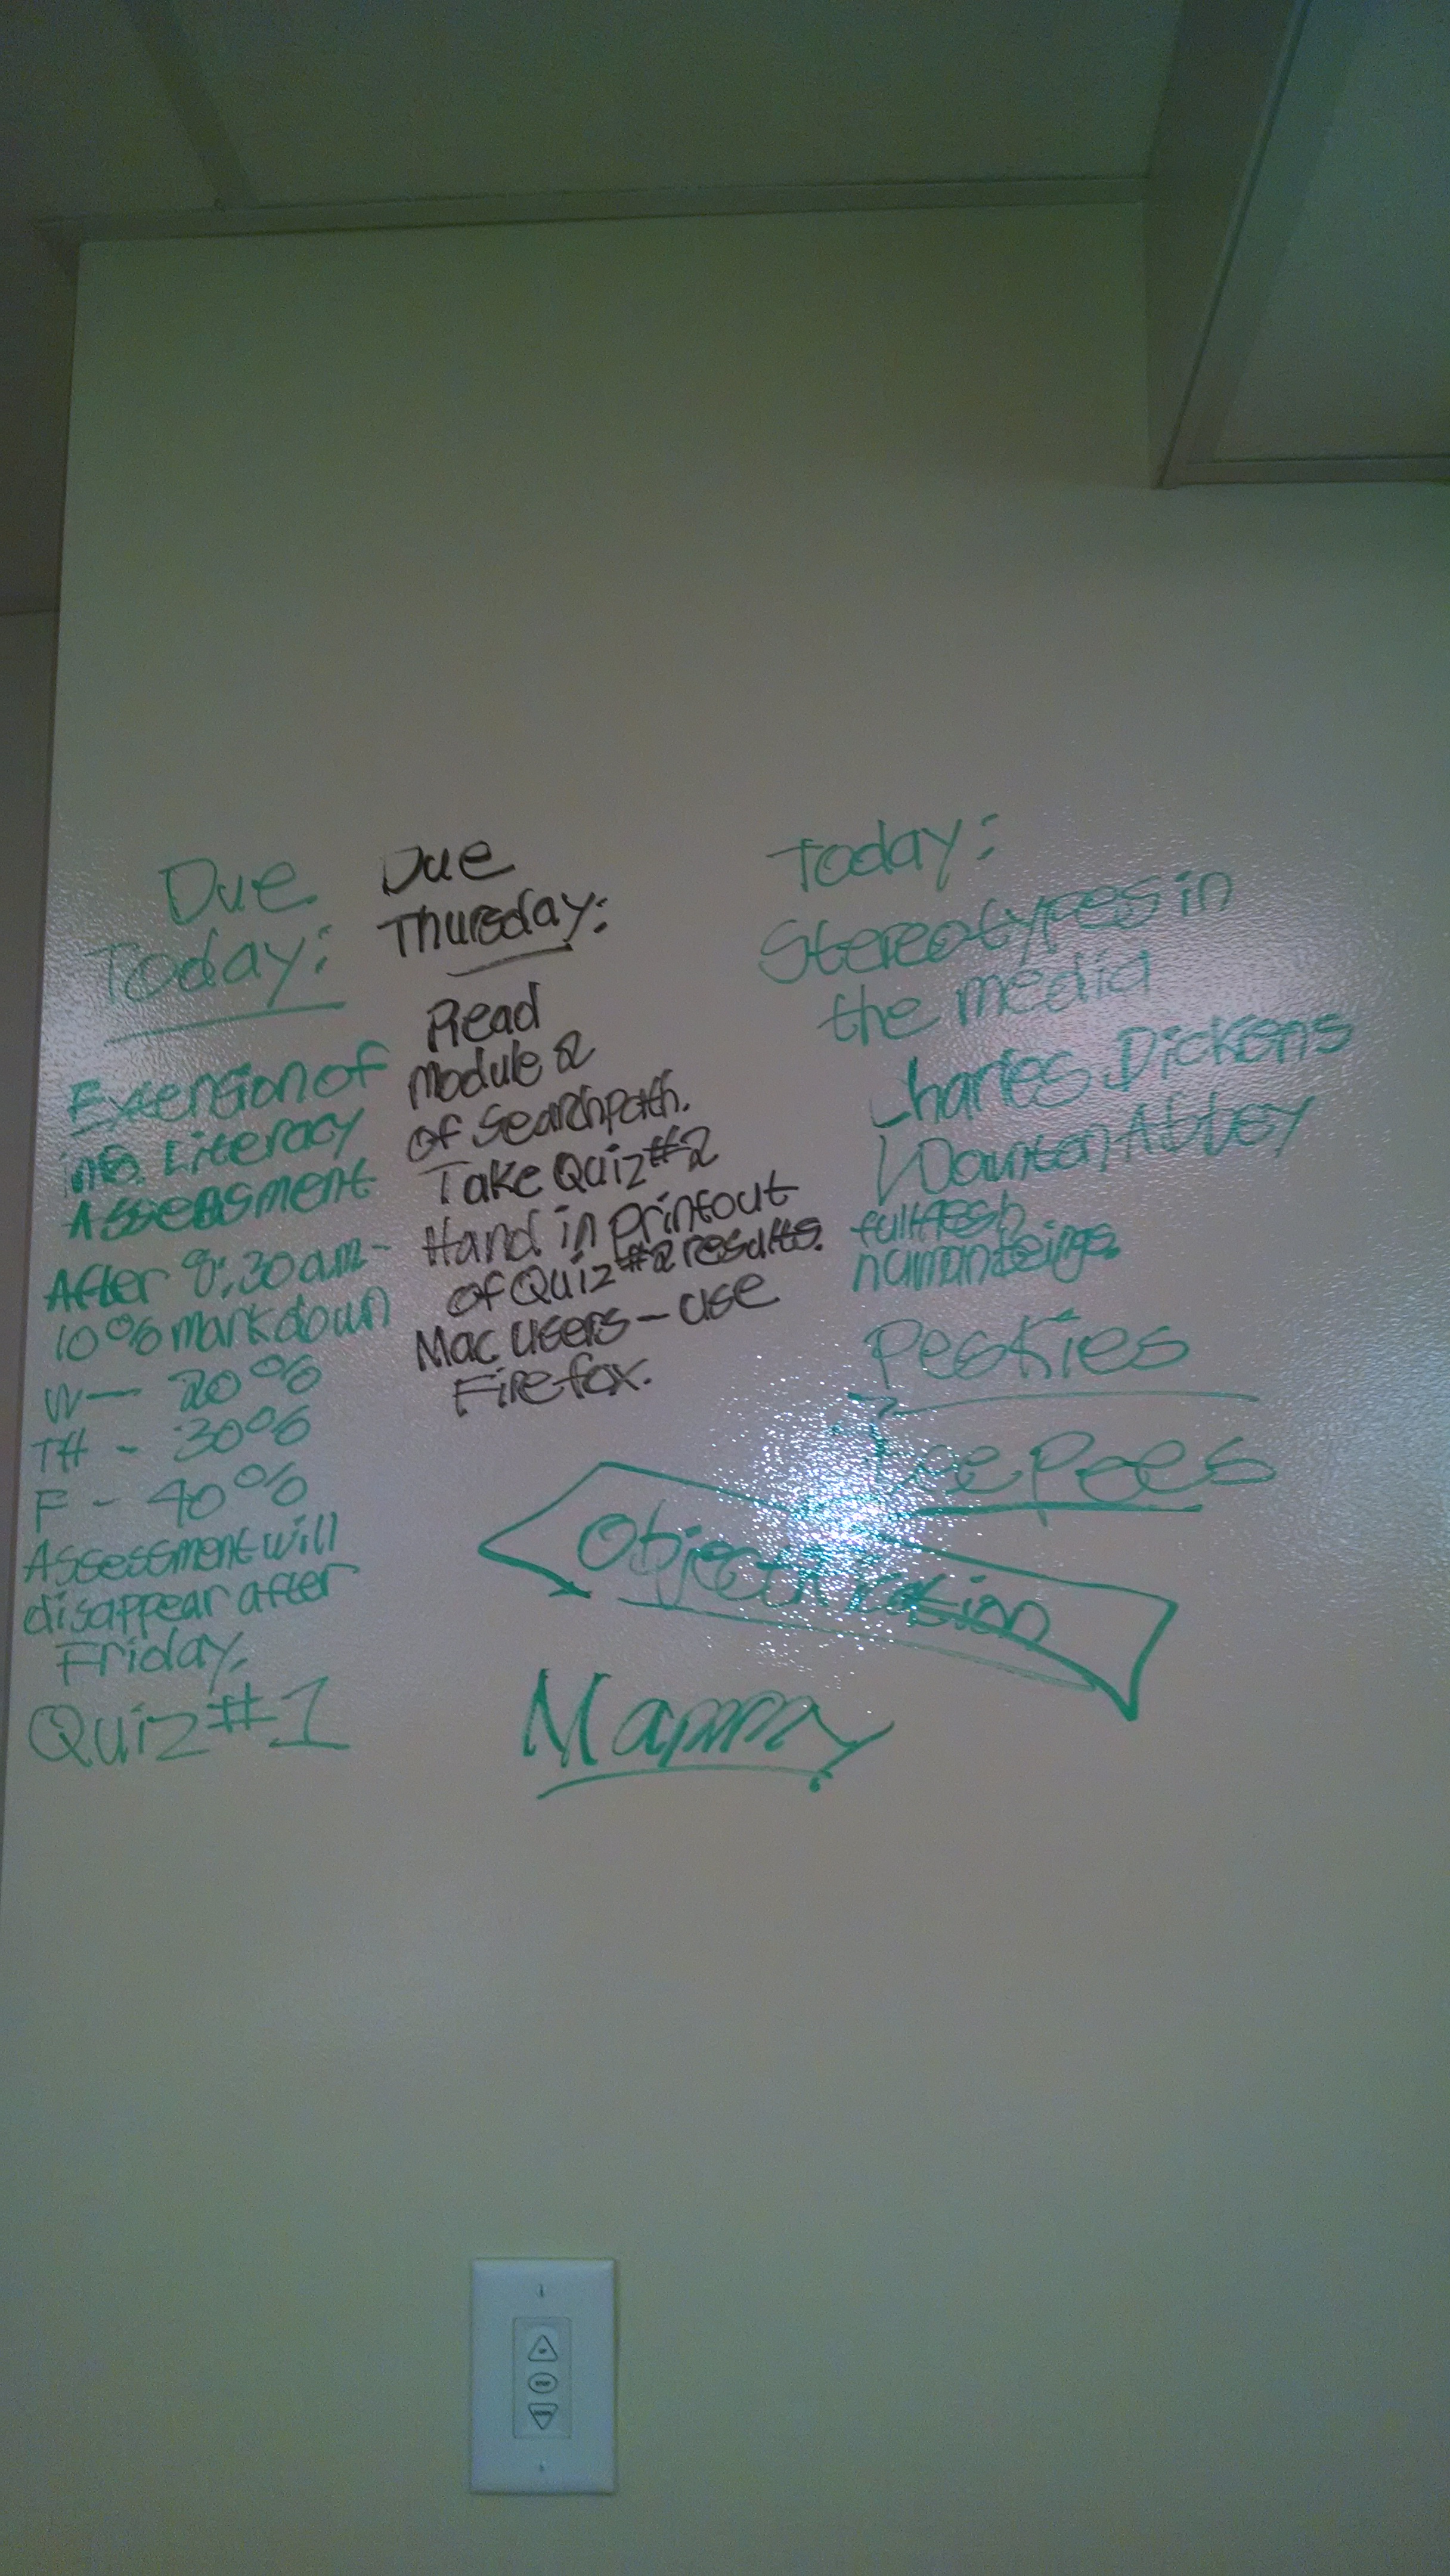 Due
Today:
Extension of
info. Literacy
Assessment
After 8:30am-
10% markdown
W - 20%
TH - 30%
F - 40%
Assessment will
disappear after
Friday.
Quiz #1
Due
Thursday:
Read
Module 2
of Searchpath.
Take Quiz #2
Hand in printout
of Quiz #2 results.
Mac users - use
Firefox.
Today:
Stereotypes in
the media
Charles Dickens
Abbey
human beings
TeePees
Objectification
Mammy